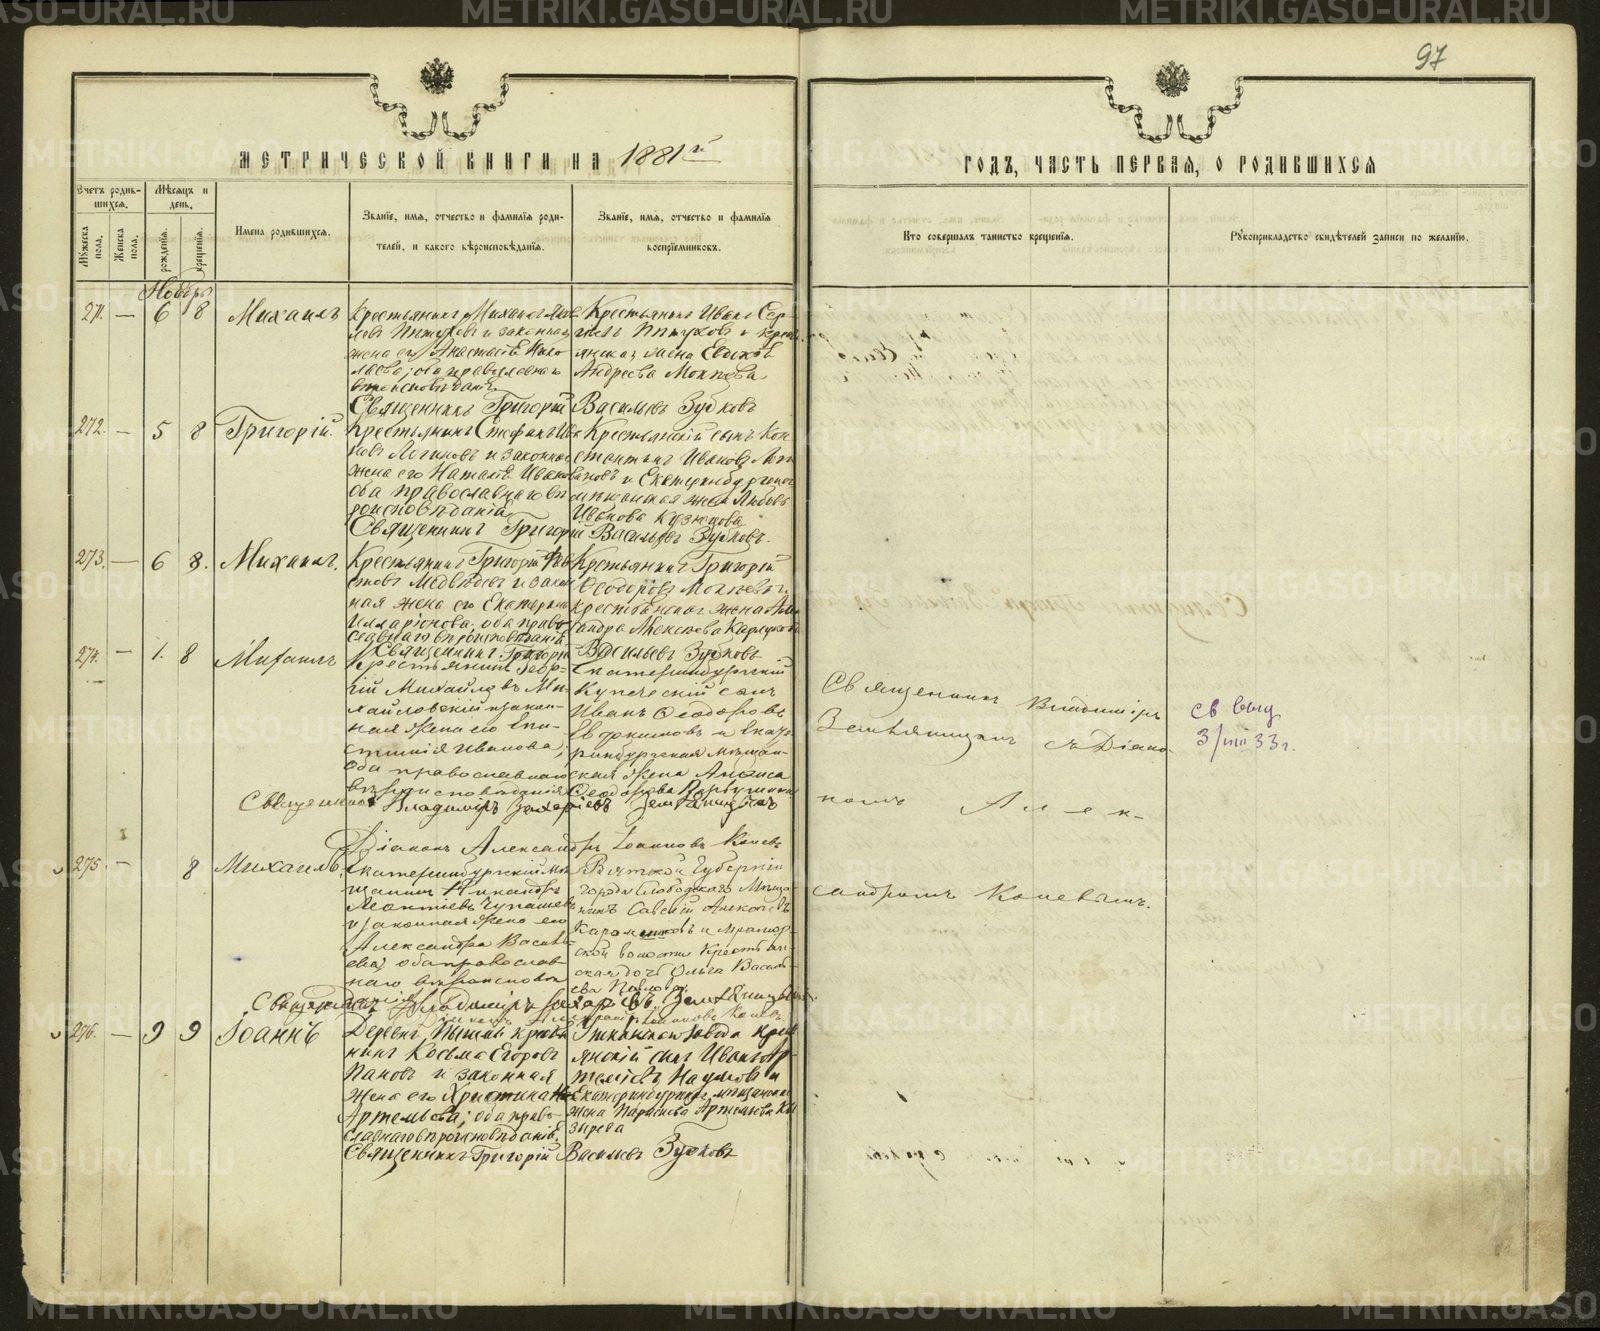 97
МЕТРИЧЕСКОЙ КНИГИ НА 1881й
ГОДЪ, ЧАСТЬ ПЕРВАЯ, О РОДИВШИХСЯ
Счетъ родив-
шихся.
Мѣсяцъ и
день.
Мужеска
пола.
Женска
пола.
рожденія.
крещенія.
Имена родившихся.
Званіе, имя, отчество и фамилія роди-
телей, и какого вѣроисповѣданія.
Званіе, имя, отчество и фамилія
воспріемниковъ.
Кто совершалъ таинство крещенія.
Рукоприкладство свидѣтелей записи по желанію.
Ноябрь
271. — 6 8 Михаилъ
Крестьянинъ Михаилъ
Пѣтуховъ и законная
жена его Анастасія Нико-
лаева; оба православнаго
вѣроисповѣданія.
Крестьянинъ Иванъ Сер-
Пѣтуховъ и кресть-
янская жена Евдокія
Андреева Мокѣева
Священникъ Григорій Васильевъ Зубковъ
272. — 5 8 Григорій.
Крестьянинъ Стефанъ Ива-
новъ Логиновъ и законная
жена его Наталія Иванова
оба православнаго вѣ-
роисповѣданія
Крестьянскій сынъ Кон-
стантинъ Ивановъ Логи-
новъ и Екатеринбургская
мѣщанская жена Любовь
Иванова Кузнецова
Священникъ Григорій Васильевъ Зубковъ.
273. — 6 8. Михаилъ.
Крестьянинъ Григорій
Медвѣдевъ и закон-
ная жена его Екатерина
Илларіонова, оба право-
славнаго вѣроисповѣданія
Крестьянинъ Григорій
Ѳеодоровъ Мокѣевъ и
крестьянская жена Алек-
сандра Алексѣева
Священникъ Григорій Васильевъ Зубковъ
274. — 1. 8 Михаилъ
Крестьянинъ Геор-
гій Михайловъ Ми-
хайловскій и закон-
ная жена его Епи-
стимія Иванова;
оба православнаго
вѣроисповѣданія
Екатеринбургскій
Купеческій сынъ
Иванъ Ѳеодоровъ
Евдокимовъ и Екате-
ринбургская мѣщан-
ская жена Анфиса
Ѳеодорова
Священникъ Владиміръ Захаріевъ Земляницынъ
Діаконъ Александръ Іоанновъ Коневъ
Священникъ Владиміръ
Земляницынъ съ Діако-
номъ Алек-
сандромъ Коневымъ.
св выд
3/III 33 г.
275. — 8 Михаилъ.
Екатеринбургскій мѣ-
щанинъ Никандръ
Леонтіевъ Чупашевъ
и законная жена его
Александра Василь-
ева; оба православ-
наго вѣроисповѣд
Вятской Губерніи
города Слободскаго Мѣща-
нинъ Савелій Алексѣевъ
и Мрамор-
ской волости Крестьян-
ская дочь Ольга Василь-
ева
Священникъ Владиміръ Захаріевъ Земляницынъ
Діаконъ Александръ Іоанновъ Коневъ
276. — 9 9 Іоаннъ
Деревни Пышмы крестья-
нинъ Косьма Егоровъ
Пановъ и законная
жена его Христина
Артемьева; оба право-
славнаго вѣроисповѣданія.
Уткинскаго завода крест-
янскій сынъ Иванъ Ар-
теміевъ Наумовъ и
Екатеринбургск. мѣщанская
жена Параскева Артемьева Ко-
зырева
Священникъ Григорій Васильевъ Зубковъ
METRIKI.GASO-URAL.RU